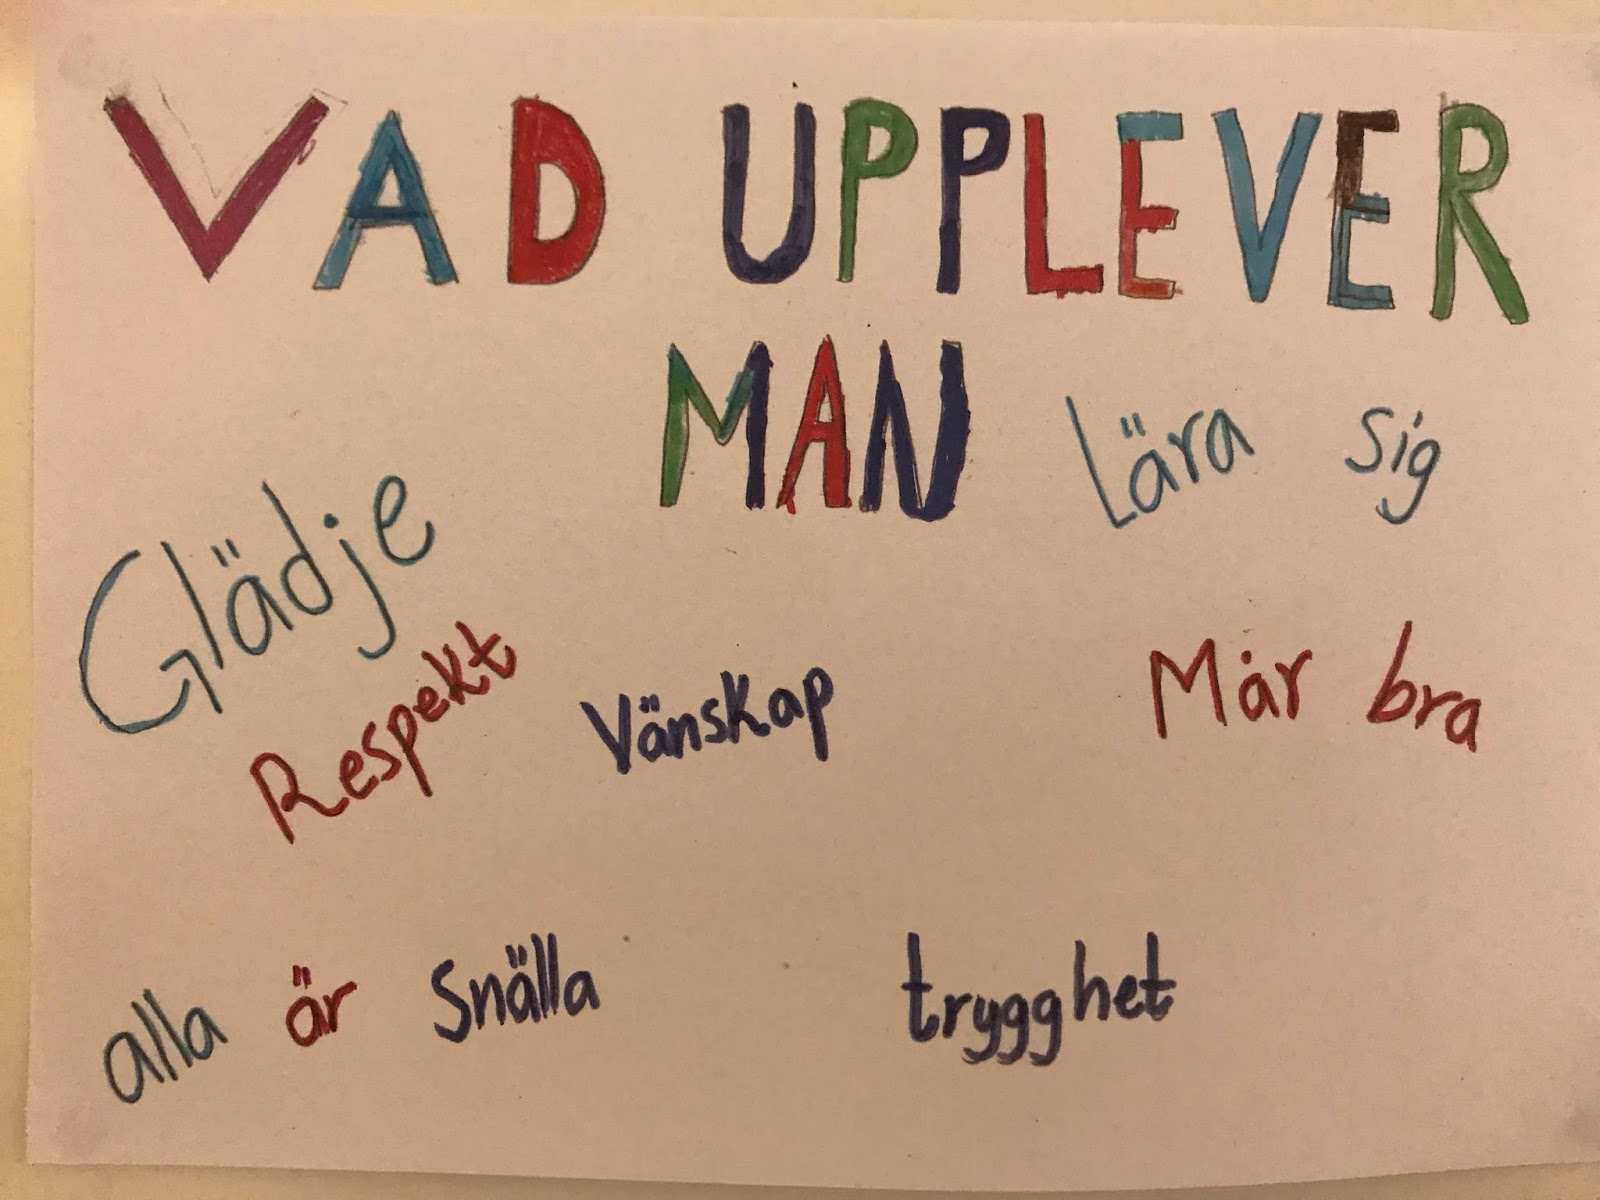 VAD UPPLEVER
MAN
Lära sig
Glädje
Respekt
Vänskap
Mår bra
alla är snälla
trygghet